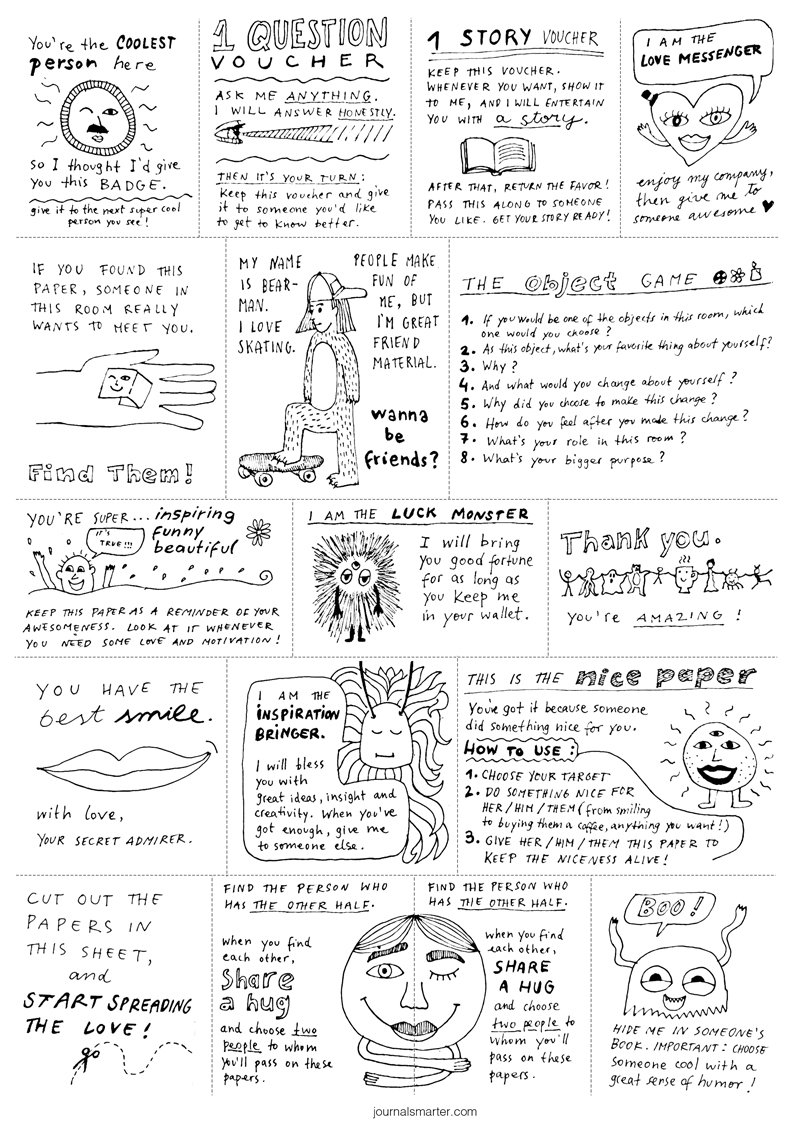 You're the COOLEST
person here
So I thought I'd give
you this BADGE.
give it to the next super cool
person you see!
1 QUESTION
VOUCHER
ASK ME ANYTHING.
I WILL ANSWER HONESTLY.
THEN IT'S YOUR TURN:
Keep this voucher and give
it to someone you'd like
to get to know better.
1 STORY VOUCHER
KEEP THIS VOUCHER.
WHENEVER YOU WANT, SHOW IT
TO ME, AND I WILL ENTERTAIN
YOU WITH a story.
AFTER THAT, RETURN THE FAVOR!
PASS THIS ALONG TO SOMEONE
YOU LIKE. GET YOUR STORY READY!
I AM THE
LOVE MESSENGER
enjoy my company,
then give me to
someone awesome
IF YOU FOUND THIS
PAPER, SOMEONE IN
THIS ROOM REALLY
WANTS TO MEET YOU.
Find Them!
MY NAME
IS BEAR-
MAN.
I LOVE
SKATING.
PEOPLE MAKE
FUN OF
ME, BUT
I'M GREAT
FRIEND
MATERIAL.
wanna
be
friends?
THE Object GAME
1. If you would be one of the objects in this room, which
one would you choose?
2. As this object, what's your favorite thing about yourself?
3. Why?
4. And what would you change about yourself?
5. Why did you choose to make this change?
6. How do you feel after you made this change?
7. What's your role in this room?
8. What's your bigger purpose?
YOU'RE SUPER... inspiring
funny
beautiful
IT'S
TRUE!!!
KEEP THIS PAPER AS A REMINDER OF YOUR
AWESOMENESS. LOOK AT IT WHENEVER
YOU NEED SOME LOVE AND MOTIVATION!
I AM THE LUCK MONSTER
I will bring
you good fortune
for as long as
you keep me
in your wallet.
Thank you.
You're AMAZING!
YOU HAVE THE
best smile.
with love,
YOUR SECRET ADMIRER.
I AM THE
INSPIRATION
BRINGER.
I will bless
you with
great ideas, insight and
creativity. When you've
got enough, give me
to someone else.
THIS IS THE nice paper
You've got it because someone
did something nice for you.
HOW TO USE:
1. CHOOSE YOUR TARGET
2. DO SOMETHING NICE FOR
HER/HIM/THEM (from smiling
to buying them a coffee, anything you want!)
3. GIVE HER/HIM/THEM THIS PAPER TO
KEEP THE NICENESS ALIVE!
CUT OUT THE
PAPERS IN
THIS SHEET,
and
START SPREADING
THE LOVE!
FIND THE PERSON WHO
HAS THE OTHER HALF.
when you find
each other,
Share
a hug
and choose two
people to whom
you'll pass on these
papers.
FIND THE PERSON WHO
HAS THE OTHER HALF.
when you find
each other,
SHARE
A HUG
and choose
two people to
whom you'll
pass on these
papers.
BOO!
HIDE ME IN SOMEONE'S
BOOK. IMPORTANT: CHOOSE
someone cool with a
great sense of humor!
journalsmarter.com